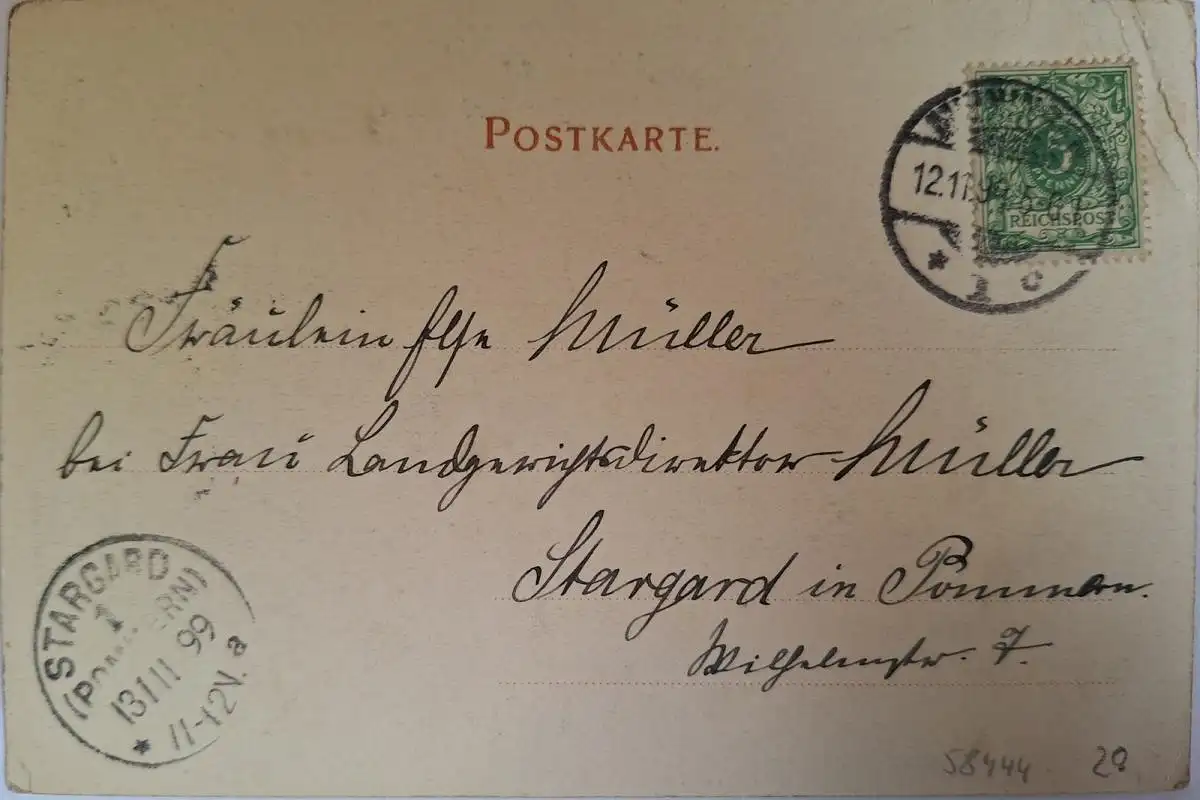 POSTKARTE.
12.11.99. 5-6
5
PFENNIG
REICHSPOST
* 1 c
Fräulein Else Müller
bei Frau Landgerichtsdirektor Müller
Stargard in Pommern.
Wilhelmstr. 7.
STARGARD
(POMMERN)
1
13/11 99
11-12V. a
*
58444 28